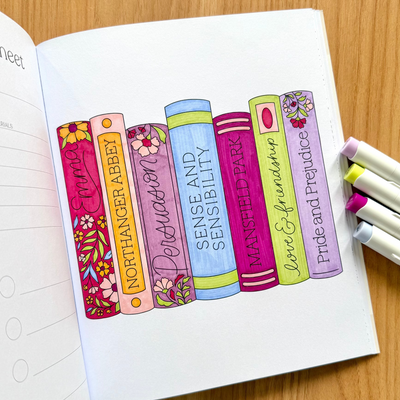 Emma
NORTHANGER ABBEY
Persuasion
SENSE AND
SENSIBILITY
MANSFIELD PARK
love & friendship
Pride and Prejudice